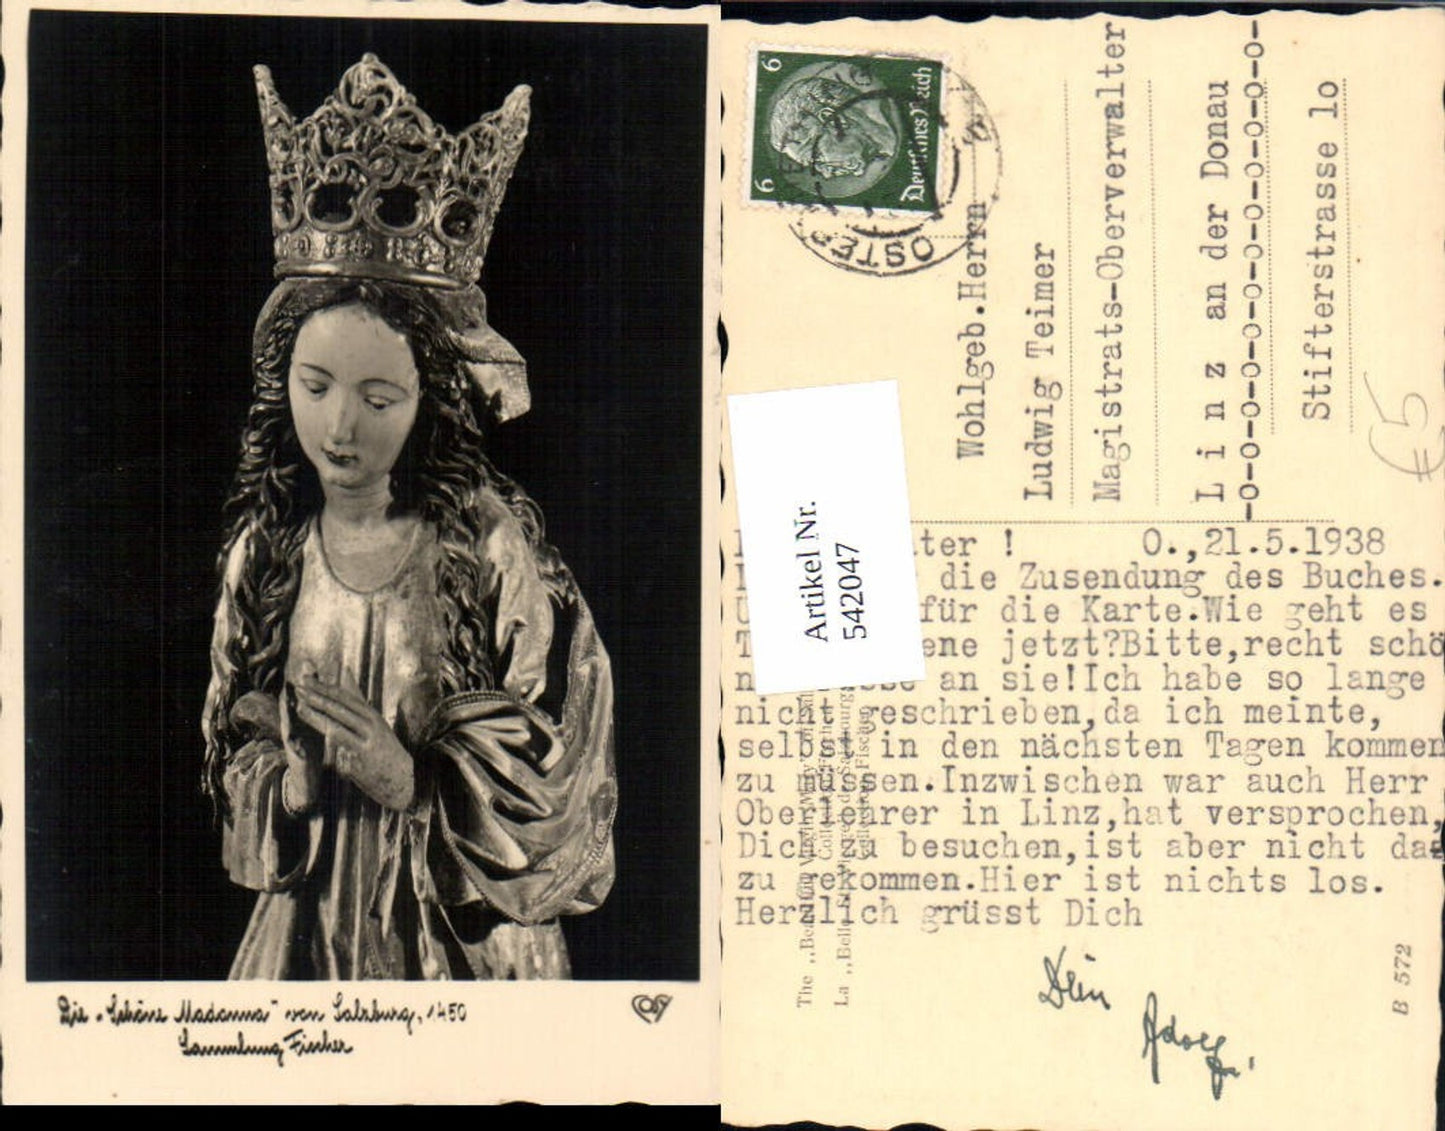 Die „Schöne Madonna" von Salzburg, 1450
Sammlung Fischer
COSY
6 6
Deutsches Reich
OSTER
Wohlgeb.Herrn
Ludwig Teimer
Magistrats-Oberverwalter
L i n z an der Donau
-o-o-o-o-o-o-o-o-o-o-o-o-o-
Stifterstrasse lo
€5
Artikel Nr.
542047
ter ! O.,21.5.1938
die Zusendung des Buches.
für die Karte.Wie geht es
ene jetzt?Bitte,recht schö
an sie!Ich habe so lange
nicht geschrieben,da ich meinte,
selbst in den nächsten Tagen kommen
zu müssen.Inzwischen war auch Herr
Oberlehrer in Linz,hat versprochen,
Dich zu besuchen,ist aber nicht da
zu gekommen.Hier ist nichts los.
Herzlich grüsst Dich
Dein
Adolf
The „Beautiful Virgin Mary"
La „Belle
Fischer
B 572